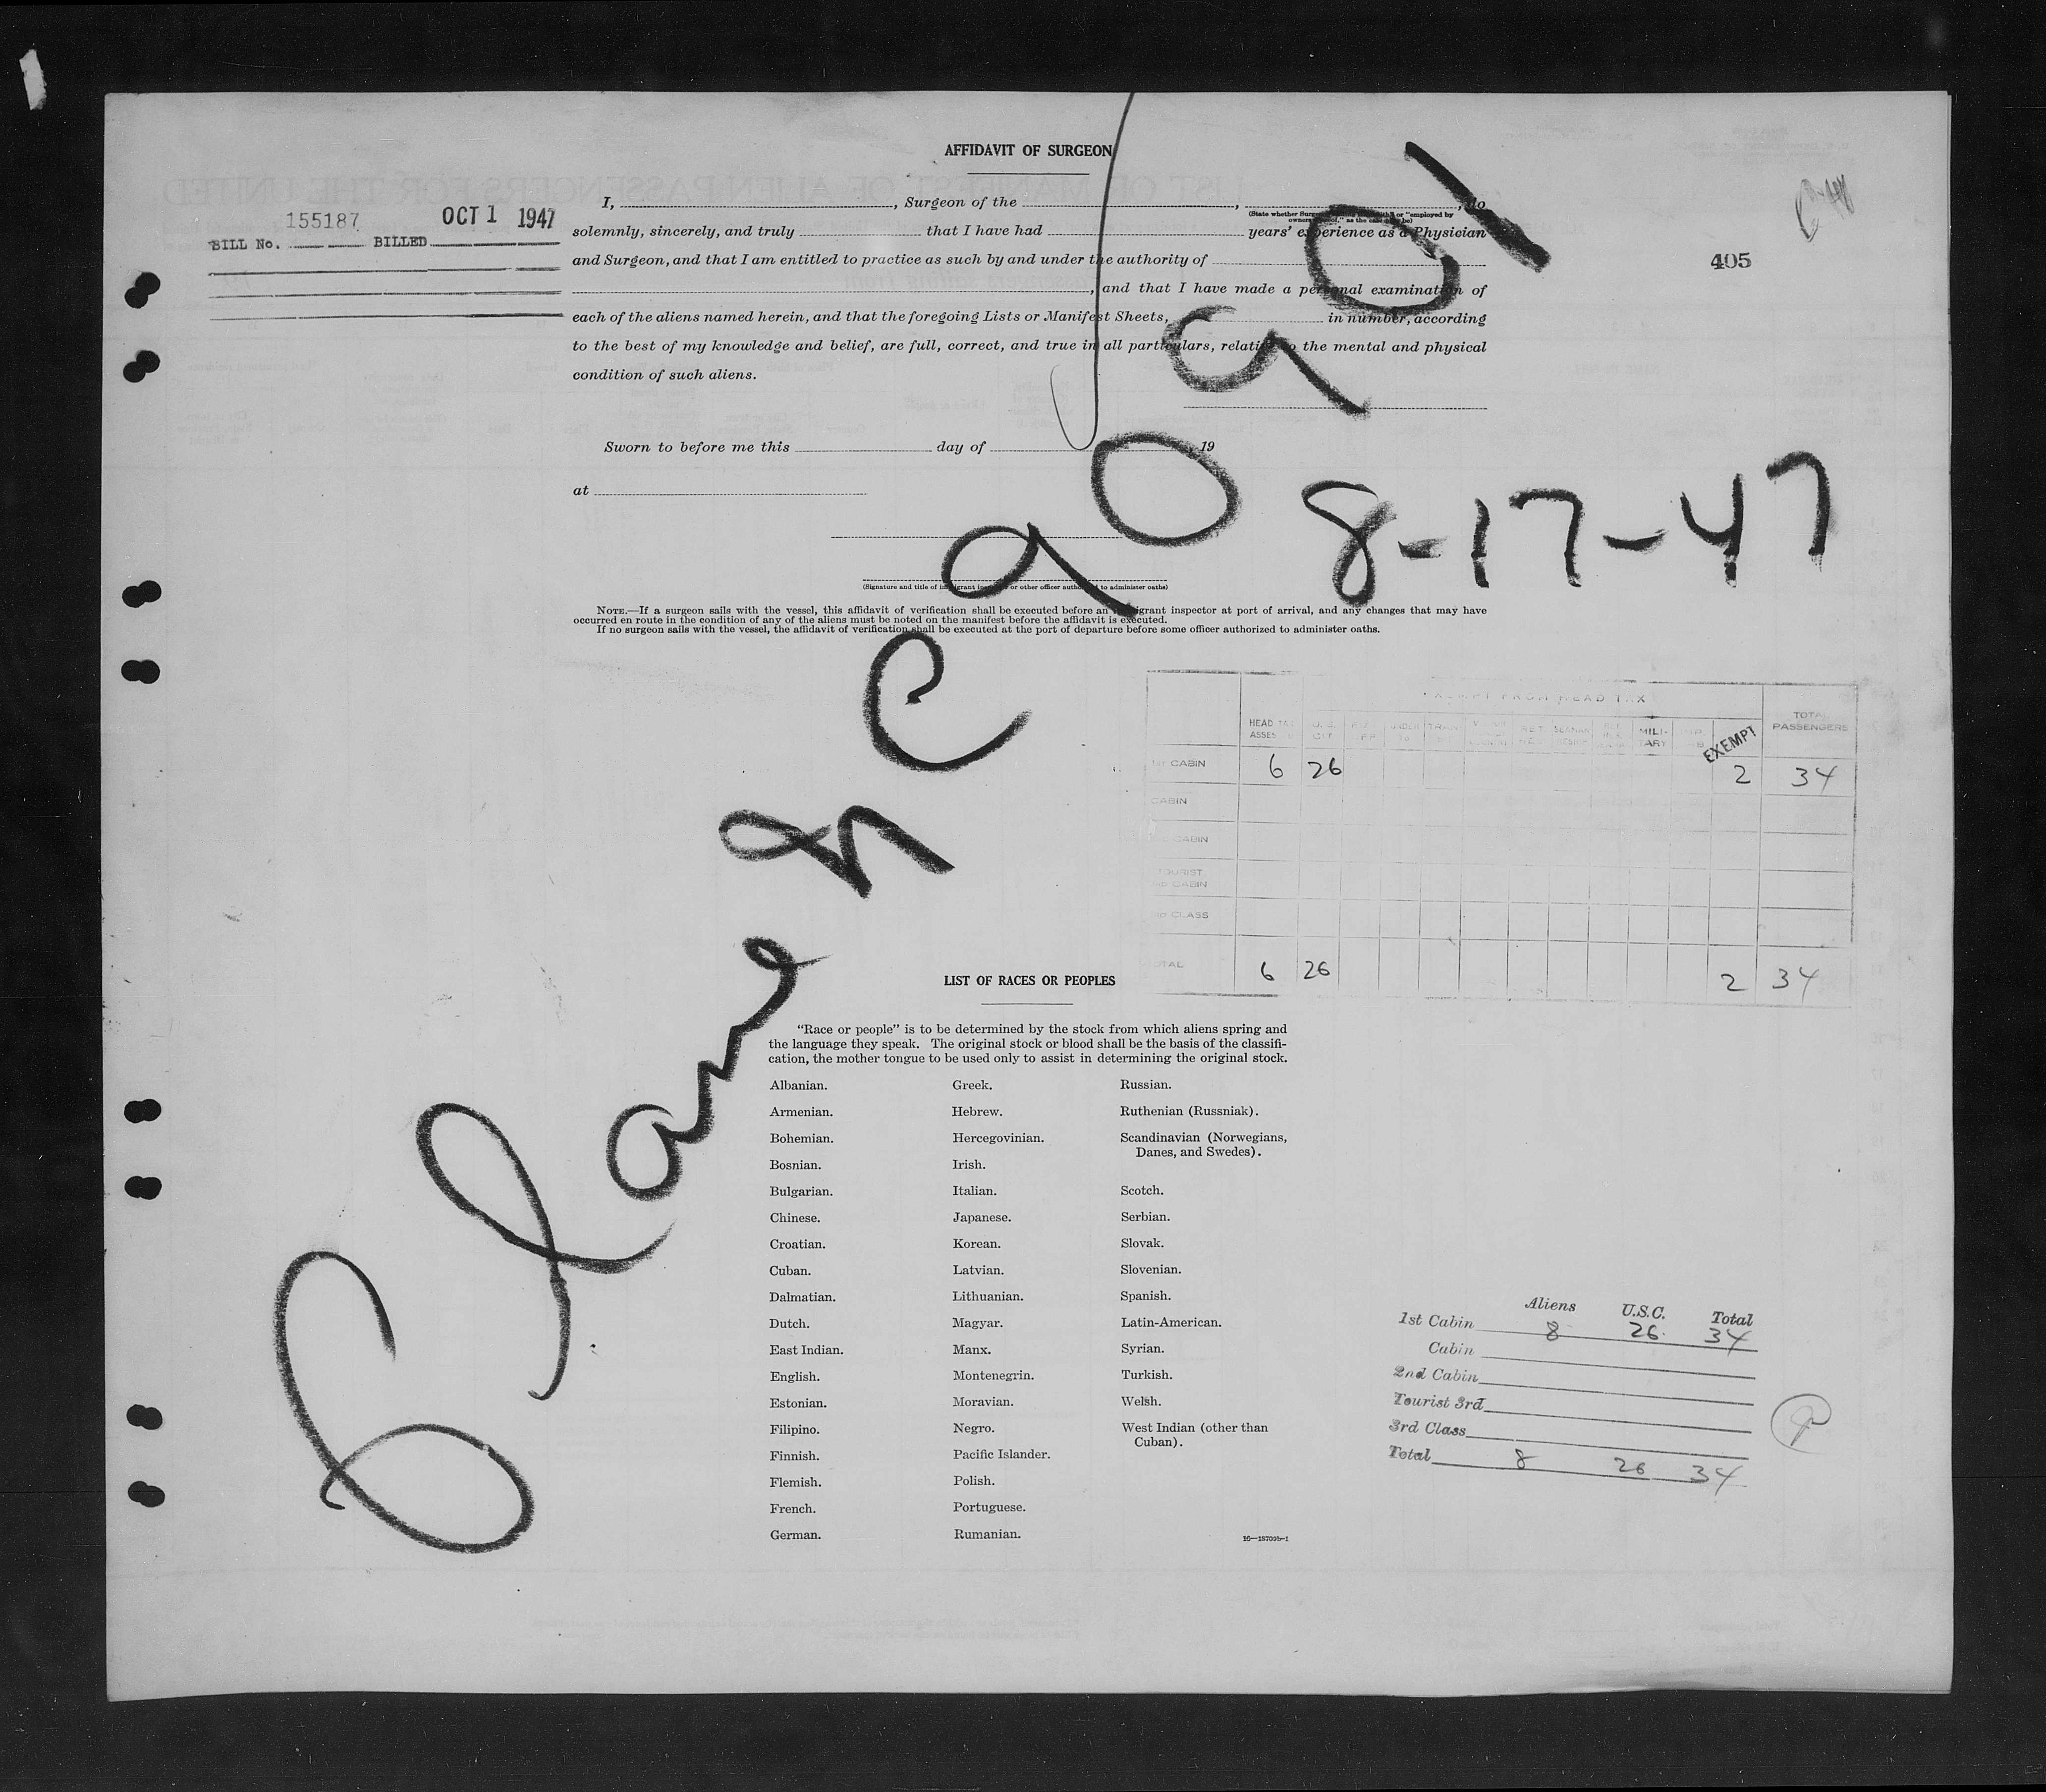 AFFIDAVIT OF SURGEON
I, , Surgeon of the , , do
(State whether Surgeon or "employed by owners as the case may be)
solemnly, sincerely, and truly that I have had years' experience as a Physician
and Surgeon, and that I am entitled to practice as such by and under the authority of
, and that I have made a personal examination of
each of the aliens named herein, and that the foregoing Lists or Manifest Sheets, in number, according
to the best of my knowledge and belief, are full, correct, and true in all particulars, relative to the mental and physical
condition of such aliens.
155187 OCT 1 1947
BILL No. BILLED
405
Sworn to before me this day of 19
at
8-17-47
(Signature and title of immigrant inspector or other officer authorized to administer oaths)
NOTE.—If a surgeon sails with the vessel, this affidavit of verification shall be executed before an immigrant inspector at port of arrival, and any changes that may have
occurred en route in the condition of any of the aliens must be noted on the manifest before the affidavit is executed.
If no surgeon sails with the vessel, the affidavit of verification shall be executed at the port of departure before some officer authorized to administer oaths.
EXEMPT FROM HEAD TAX
HEAD TAX U.S. UNDER TRAN MILI- TOTAL
ASSES CIT 16 TARY EXEMPT PASSENGERS
CABIN 6 26 2 34
CABIN
CABIN
TOURIST
CABIN
CLASS
TOTAL 6 26 2 34
LIST OF RACES OR PEOPLES
"Race or people" is to be determined by the stock from which aliens spring and
the language they speak. The original stock or blood shall be the basis of the classifi-
cation, the mother tongue to be used only to assist in determining the original stock.
Albanian. Greek. Russian.
Armenian. Hebrew. Ruthenian (Russniak).
Bohemian. Hercegovinian. Scandinavian (Norwegians,
Danes, and Swedes).
Bosnian. Irish.
Bulgarian. Italian. Scotch.
Chinese. Japanese. Serbian.
Croatian. Korean. Slovak.
Cuban. Latvian. Slovenian.
Dalmatian. Lithuanian. Spanish.
Dutch. Magyar. Latin-American.
East Indian. Manx. Syrian.
English. Montenegrin. Turkish.
Estonian. Moravian. Welsh.
Filipino. Negro. West Indian (other than
Cuban).
Finnish. Pacific Islander.
Flemish. Polish.
French. Portuguese.
German. Rumanian.
16—18709b-1
Aliens U.S.C. Total
1st Cabin 8 26 34
Cabin
2nd Cabin
Tourist 3rd
3rd Class
Total 8 26 34